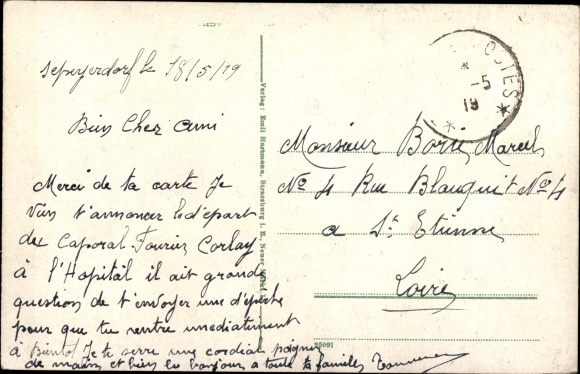 le 18/5/19
Bien Cher ami
Merci de ta carte Je
Viens t'annoncer le départ
du Caporal Fourier Corlay
à l'Hopital il ait grande
question de t'envoyer une dépêche
pour que tu rentre imediatement
à Bientot Je te serre une cordial poignée
de mains et bien le bonjour a toute ta famille
Verlag: Emil Hartmann, Strassburg i. E., Neuer
POSTES
-5
19
Monsieur Borie Marcel
No 4 Rue Blanquit No 4
a St Etienne
Loire